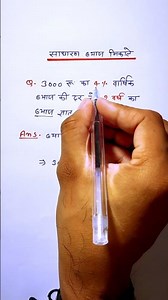 साधारण ब्याज निकाले
Q. 3000 रु का 4% वार्षिक
ब्याज की दर से वर्ष का
ब्याज ज्ञात
Ans.
⇒